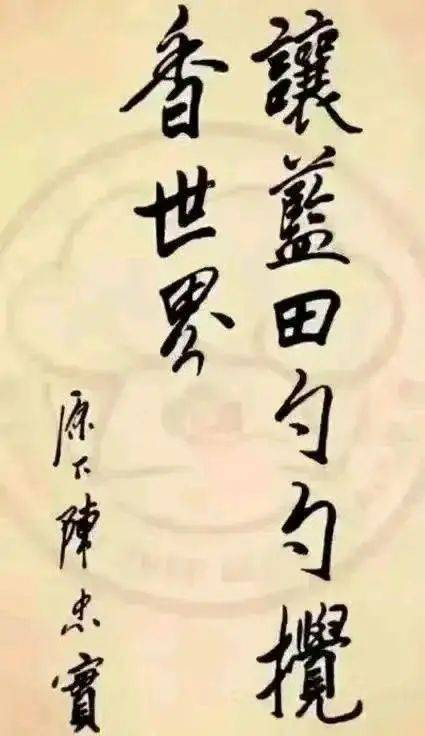 讓藍田勺勺攪
香世界
原下陳忠實